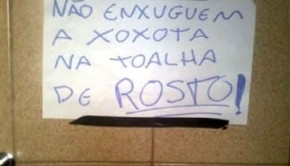 NÃO ENXUGUEM
A XOXOTA
NA TOALHA
DE ROSTO!